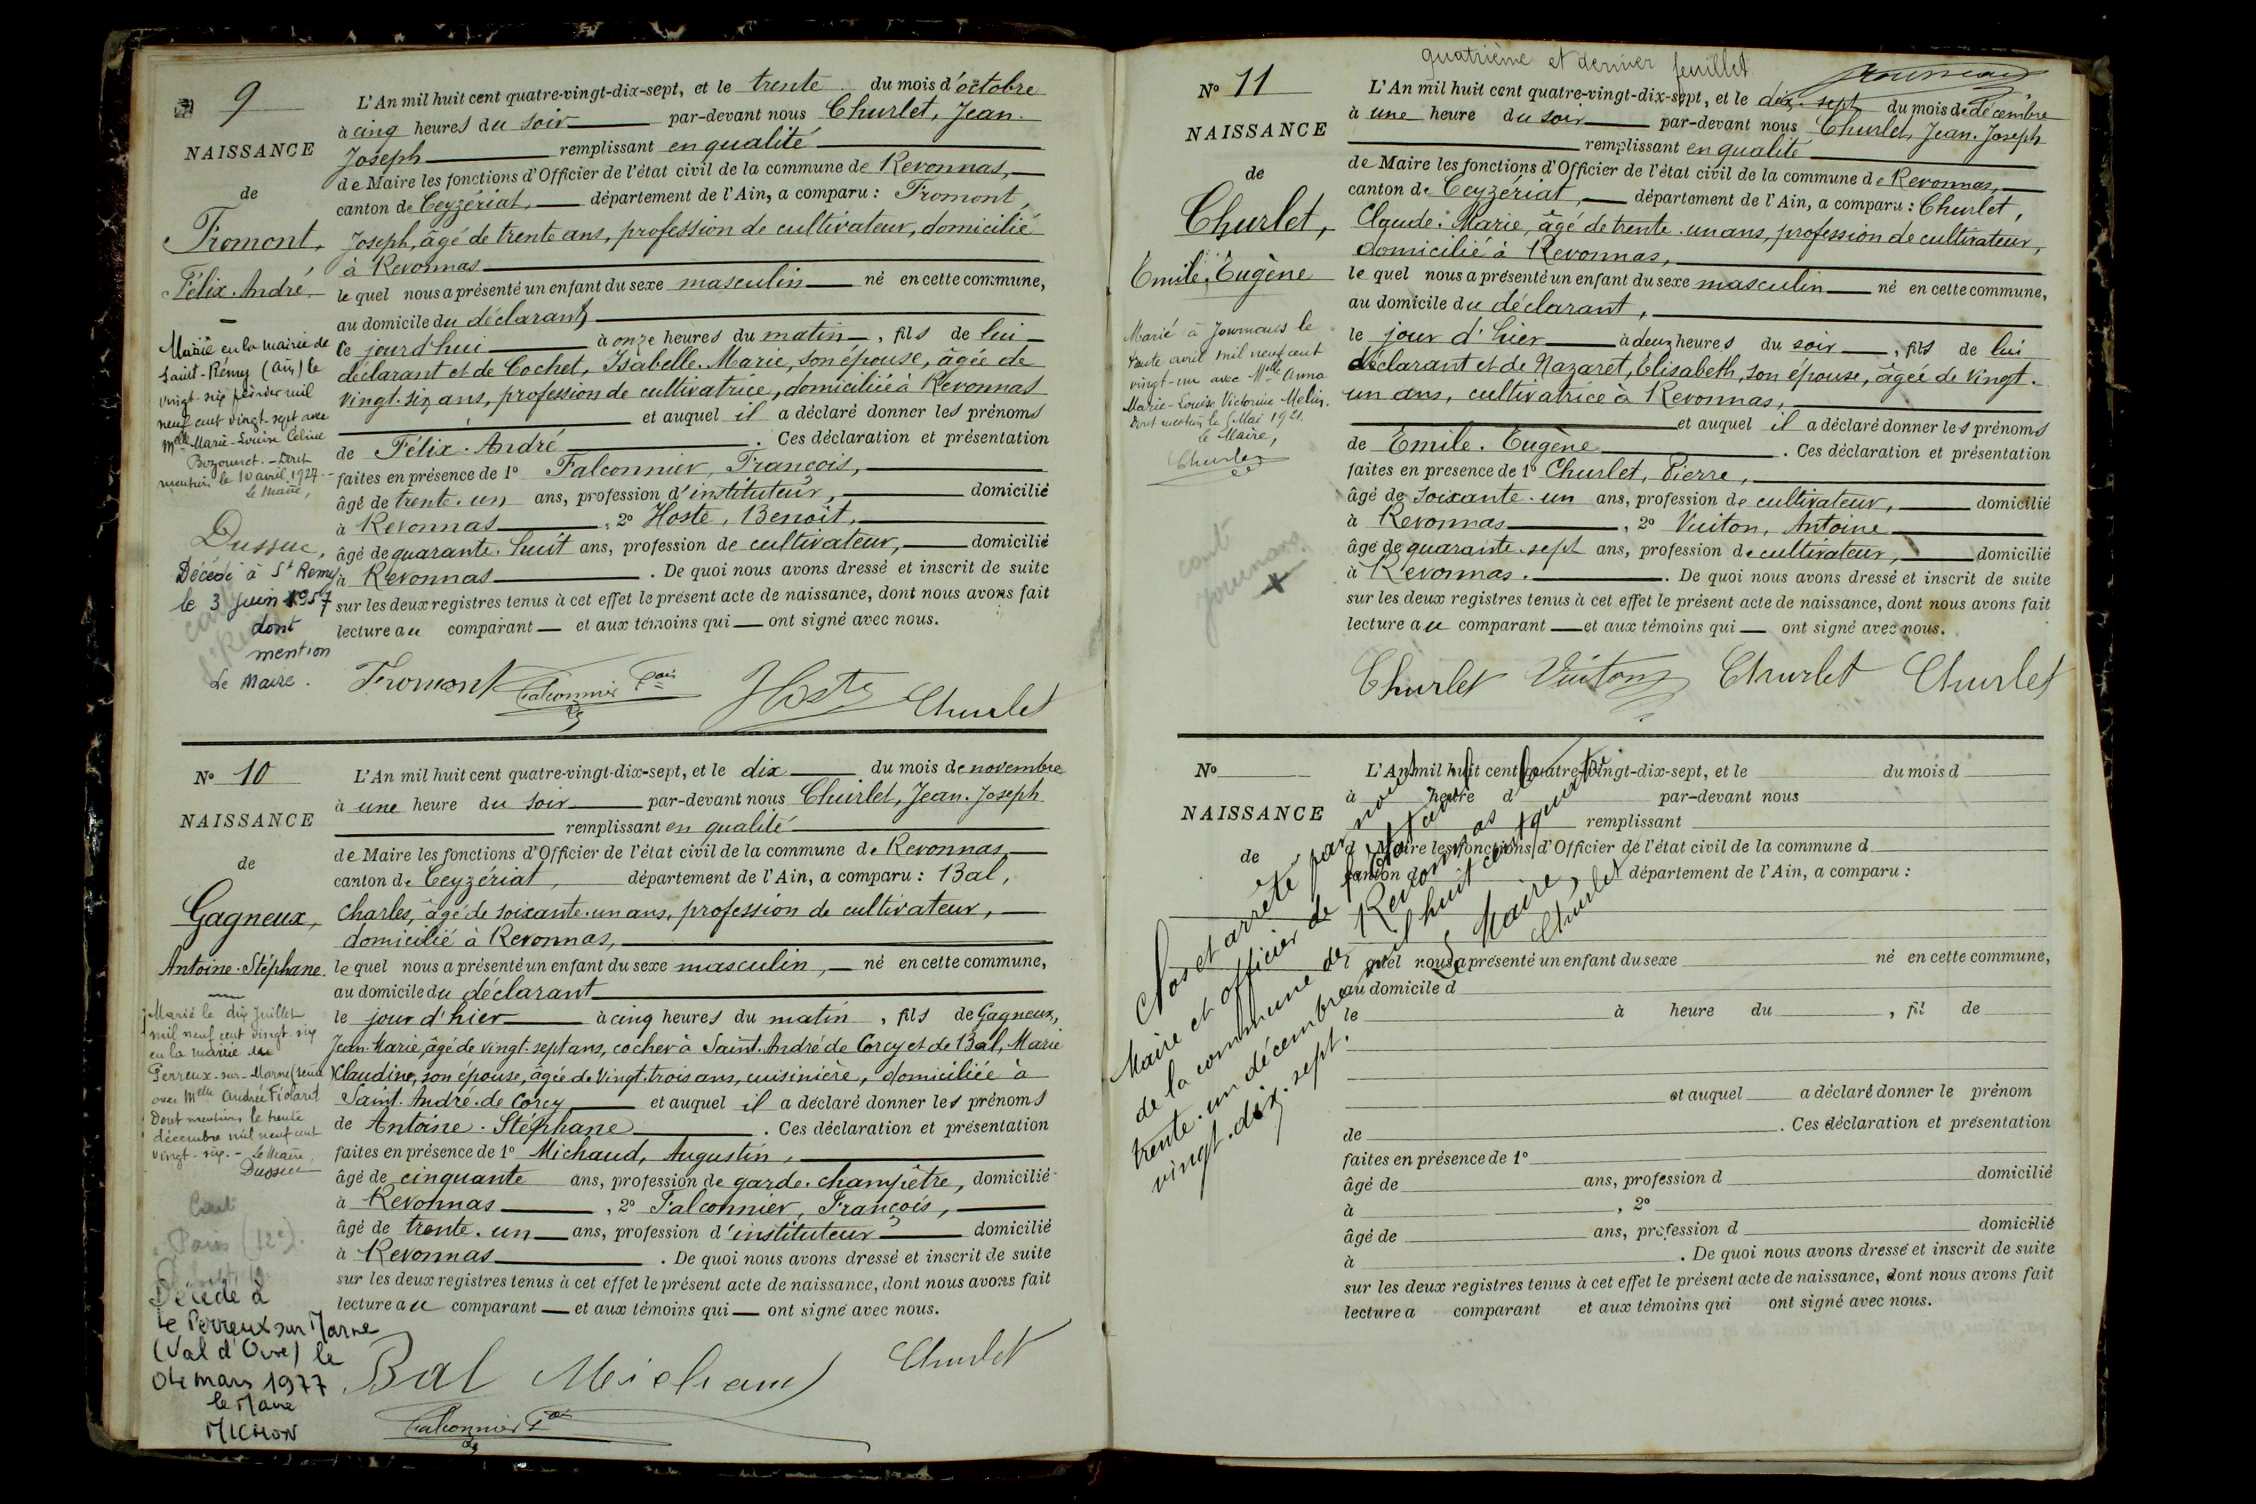 9
NAISSANCE
de
Fromont,
Félix. André
Marié en la mairie de
Saint-Rémy (Ain) le
vingt-six février mil
neuf cent vingt-sept avec
Melle Marie-Louise Celine
Dont
mention le 10 avril 1927
le Maire,
Dussuc,
Décédé à St Remy
le 3 juin 1957
dont
mention
Le Maire.
L'An mil huit cent quatre-vingt-dix-sept, et le trente du mois d'octobre
à cinq heures du soir par-devant nous Churlet, Jean.
Joseph remplissant en qualité
de Maire les fonctions d'Officier de l'état civil de la commune de Revonnas,
canton de Ceyzériat, département de l'Ain, a comparu : Fromont,
Joseph, âgé de trente ans, profession de cultivateur, domicilié
à Revonnas
le quel nous a présenté un enfant du sexe masculin né en cette commune,
au domicile du déclarant,
ce jourd'hui à onze heures du matin, fils de lui
déclarant et de Cochet, Isabelle. Marie, son épouse, âgée de
vingt. six ans, profession de cultivatrice, domiciliée à Revonnas
et auquel il a déclaré donner les prénoms
de Félix. André. Ces déclaration et présentation
faites en présence de 1° Falconnier, François,
âgé de trente. un ans, profession d'instituteur, domicilié
à Revonnas, 2° Hoste, Benoit,
âgé de quarante. huit ans, profession de cultivateur, domicilié
à Revonnas. De quoi nous avons dressé et inscrit de suite
sur les deux registres tenus à cet effet le présent acte de naissance, dont nous avons fait
lecture au comparant et aux témoins qui ont signé avec nous.
Fromont Falconnier Fçois Hoste Churlet
N° 10
NAISSANCE
de
Gagneux,
Antoine. Stéphane.
Marié le dix Juillet
mil neuf cent vingt six
en la mairie du
Perreux-sur-Marne (Seine)
avec Melle Andrée Fiolaret
Dont mention le trente
décembre mil neuf cent
vingt-six.- Le Maire,
Dussuc
Paris (12e).
Décédé à
Le Perreux sur Marne
(Val d'Oise) le
04 mars 1977
le Maire
MICHON
L'An mil huit cent quatre-vingt-dix-sept, et le dix du mois de novembre
à une heure du soir par-devant nous Churlet, Jean. Joseph
remplissant en qualité
de Maire les fonctions d'Officier de l'état civil de la commune de Revonnas
canton de Ceyzériat, département de l'Ain, a comparu : Bal,
Charles, âgé de soixante. un ans, profession de cultivateur,
domicilié à Revonnas,
le quel nous a présenté un enfant du sexe masculin, né en cette commune,
au domicile du déclarant
le jour d'hier à cinq heures du matin, fils de Gagneux,
Jean. Marie, âgé de vingt. sept ans, cocher à Saint. André de Corcy et de Bal, Marie
Claudine, son épouse, âgée de vingt. trois ans, cuisinière, domiciliée à
Saint. André. de Corcy et auquel il a déclaré donner les prénoms
de Antoine. Stéphane. Ces déclaration et présentation
faites en présence de 1° Michaud, Augustin,
âgé de cinquante ans, profession de garde. champêtre, domicilié
à Revonnas, 2° Falconnier, François,
âgé de trente. un ans, profession d'instituteur domicilié
à Revonnas. De quoi nous avons dressé et inscrit de suite
sur les deux registres tenus à cet effet le présent acte de naissance, dont nous avons fait
lecture au comparant et aux témoins qui ont signé avec nous.
Bal Michaud Churlet
Falconnier Fçois
quatrième et dernier feuillet
N° 11
NAISSANCE
de
Churlet,
Emile. Eugène
Marié à Journans le
trente avril mil neuf cent
vingt-un avec Melle Anna
Marie-Louise Victorine Melin.
Dont mention le 5 Mai 1921.
Le Maire,
Churlet
cant
Journans
L'An mil huit cent quatre-vingt-dix-sept, et le dix. sept du mois de décembre
à une heure du soir par-devant nous Churlet, Jean. Joseph
remplissant en qualité
de Maire les fonctions d'Officier de l'état civil de la commune de Revonnas,
canton de Ceyzériat, département de l'Ain, a comparu : Churlet,
Claude. Marie, âgé de trente. un ans, profession de cultivateur,
domicilié à Revonnas,
le quel nous a présenté un enfant du sexe masculin né en cette commune,
au domicile du déclarant,
le jour d'hier à deux heures du soir, fils de lui
déclarant et de Nazaret, Elisabeth, son épouse, âgée de vingt.
un ans, cultivatrice à Revonnas,
et auquel il a déclaré donner les prénoms
de Emile. Eugène. Ces déclaration et présentation
faites en présence de 1° Churlet, Pierre,
âgé de soixante. un ans, profession de cultivateur, domicilié
à Revonnas, 2° Vuiton, Antoine
âgé de quarante. sept ans, profession de cultivateur, domicilié
à Revonnas. De quoi nous avons dressé et inscrit de suite
sur les deux registres tenus à cet effet le présent acte de naissance, dont nous avons fait
lecture au comparant et aux témoins qui ont signé avec nous.
Churlet Vuiton Churlet Churlet
N°
NAISSANCE
de
L'An mil huit cent quatre-vingt-dix-sept, et le du mois d
à heure d par-devant nous
remplissant
d Maire les fonctions d'Officier de l'état civil de la commune d
canton d département de l'Ain, a comparu :
l quel nous a présenté un enfant du sexe né en cette commune,
au domicile d
le à heure du , fil de
et auquel a déclaré donner le prénom
de . Ces déclaration et présentation
faites en présence de 1°
âgé de ans, profession d domicilié
à , 2°
âgé de ans, profession d domicilié
à . De quoi nous avons dressé et inscrit de suite
sur les deux registres tenus à cet effet le présent acte de naissance, dont nous avons fait
lecture a comparant et aux témoins qui ont signé avec nous.
Clos et arrêté par nous
Maire et officier de l'état civil
de la commune de Revonnas le
trente. un décembre mil huit cent quatre
vingt. dix. sept.
Le Maire,
Churlet